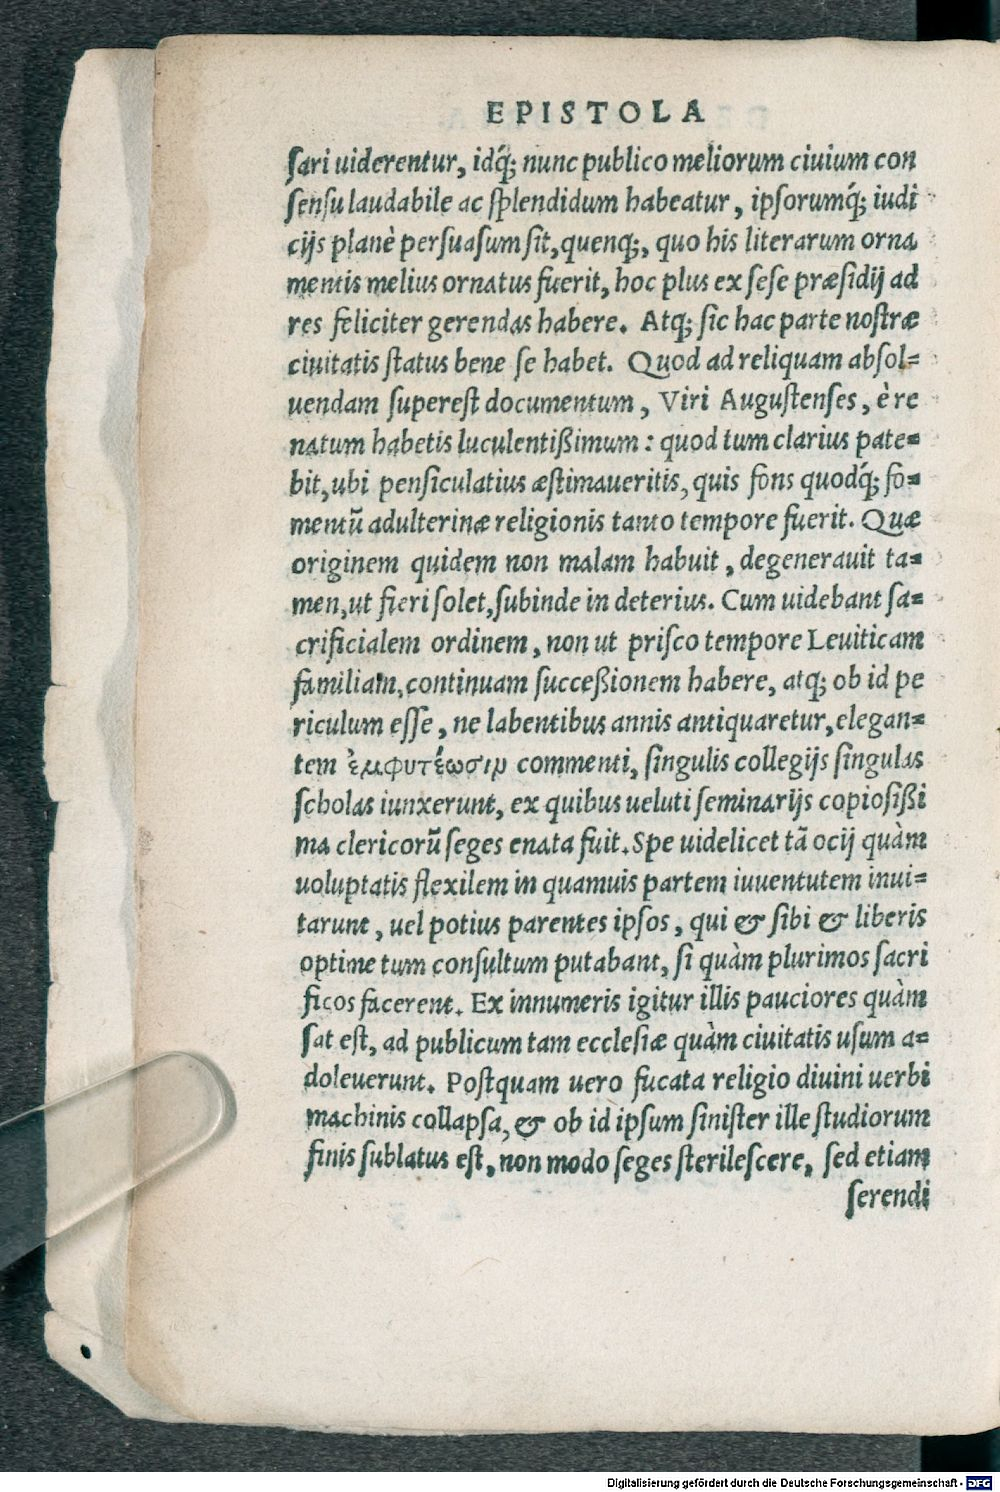 EPISTOLA
ſari uiderentur, idq́; nunc publico meliorum ciuium con
ſenſu laudabile ac ſplendidum habeatur, ipſorumq́; iudi
cijs planè perſuaſum ſit, quenq;, quo his literarum orna
mentis melius ornatus fuerit, hoc plus ex ſeſe præſidij ad
res feliciter gerendas habere. Atq; ſic hac parte noſtræ
ciuitatis ſtatus bene ſe habet. Quod ad reliquam abſol=
uendam ſupereſt documentum, Viri Auguſtenſes, è re
natum habetis luculentißimum: quod tum clarius pate=
bit, ubi penſiculatius æſtimaueritis, quis fons quodq́; fo=
mentũ adulterinæ religionis tanto tempore fuerit. Quæ
originem quidem non malam habuit, degenerauit ta=
men, ut fieri ſolet, ſubinde in deterius. Cum uidebant ſa=
crificialem ordinem, non ut priſco tempore Leuiticam
familiam, continuam ſucceßionem habere, atq; ob id pe
riculum eſſe, ne labentibus annis antiquaretur, elegan=
tem ἐμφυτέωσιν commenti, ſingulis collegijs ſingulas
ſcholas iunxerunt, ex quibus ueluti ſeminarijs copioſißi
ma clericorũ ſeges enata fuit. Spe uidelicet tã ocij quàm
uoluptatis flexilem in quamuis partem iuuentutem inui=
tarunt, uel potius parentes ipſos, qui & ſibi & liberis
optime tum conſultum putabant, ſi quàm plurimos ſacri
ficos facerent. Ex innumeris igitur illis pauciores quàm
ſat eſt, ad publicum tam eccleſiæ quàm ciuitatis uſum a=
doleuerunt. Poſtquam uero fucata religio diuini uerbi
machinis collapſa, & ob id ipſum ſiniſter ille ſtudiorum
finis ſublatus eſt, non modo ſeges ſterileſcere, ſed etiam
ſerendi
Digitalisierung gefördert durch die Deutsche Forschungsgemeinschaft - DFG